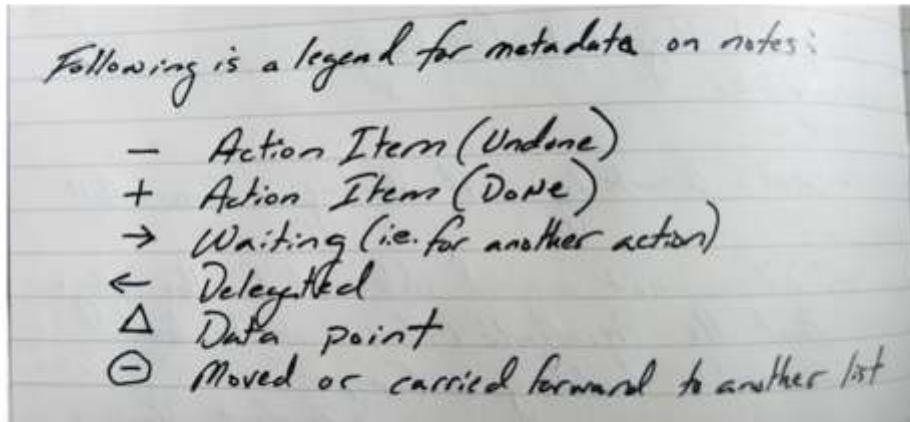 Following is a legend for metadata on notes:
— Action Item (Undone)
+ Action Item (Done)
→ Waiting (i.e. for another action)
← Delegated
△ Data point
⊖ Moved or carried forward to another list